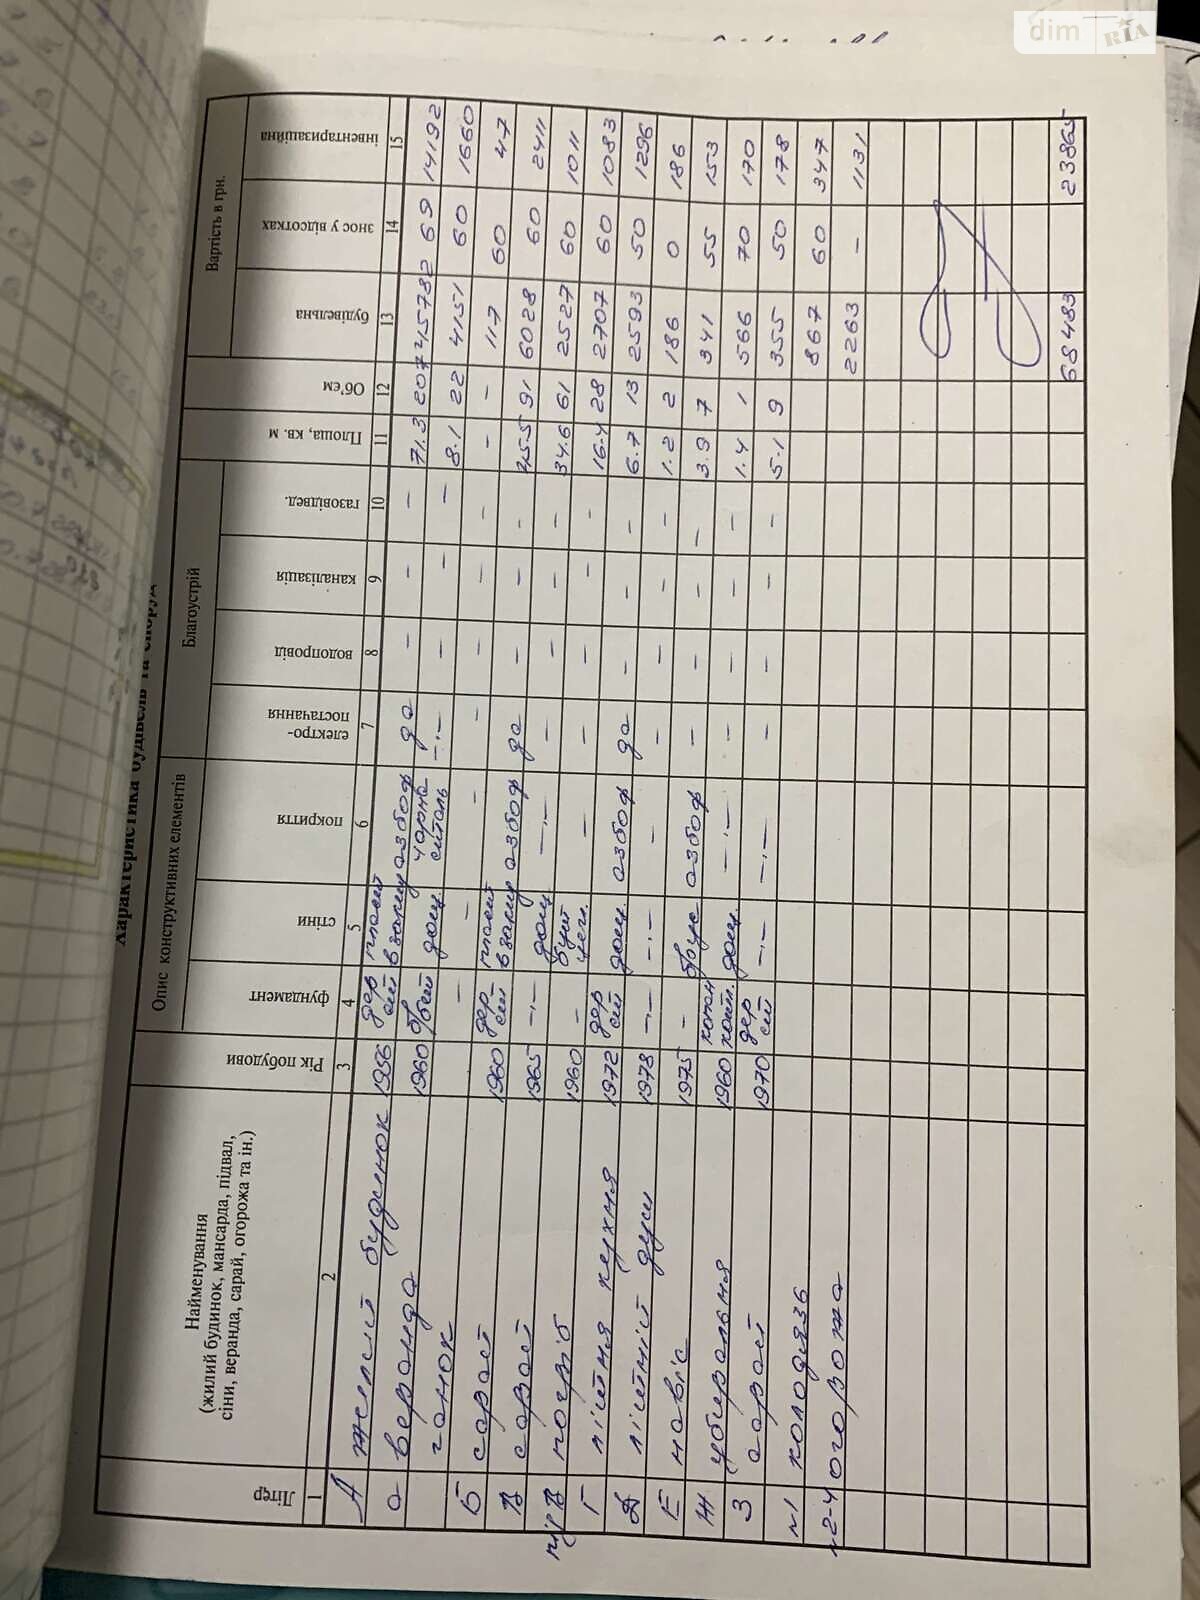 dim RIA
Характеристика будівель та споруд
Літер
Найменування
(жилий будинок, мансарда, підвал,
сіни, веранда, сарай, огорожа та ін.)
Рік побудови
Опис конструктивних елементів
фундамент
стіни
покриття
Благоустрій
електро-
постачання
водопровід
каналізація
газовідвед.
Площа, кв. м
Об'єм
Вартість в грн.
будівельна
знос у відсотках
інвентаризаційна
1 2 3 4 5 6 7 8 9 10 11 12 13 14 15
А жилий будинок 1956 азбоф да - - - 71.3 207 45782 69 14192
а веранда 1960 дощ. - - - 8.1 22 4151 60 1660
ганок - - - - - - - - - 117 60 47
Б сарай 1960 азбоф да - - - 45.5 91 6028 60 2411
В сарай 1965 -"- дощ -"- - - - - 34.6 61 2527 60 1011
п/В погріб 1960 - - - - - - 16.4 28 2707 60 1083
Г літня кухня 1972 дощ. азбоф да - - - 6.7 13 2593 50 1296
Д літній душ 1978 -"- -"- - - - - - 1.2 2 186 0 186
Е навіс 1975 - азбоф - - - - 3.9 7 341 55 153
Ж убиральня 1960 дощ. -"- - - - - 1.4 1 566 70 170
З сарай 1970 -"- -"- - - - - 5.1 9 355 50 178
№1 колодязь 867 60 347
№2-4 огорожа 2263 - 1131
68483 23865